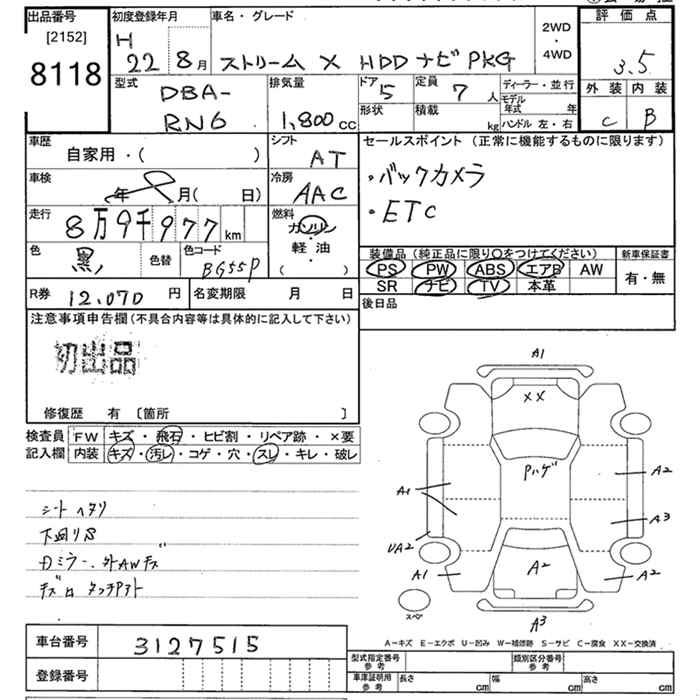 出品番号
[2152]
8118
初度登録年月
H
22 8 月
車名・グレード
ストリーム X HDD ナビ PKG
2WD
・
4WD
評価点
3.5
型式
DBA-
RN6
排気量
1,800 cc
ドア
5
定員
7 人
形状
積載
kg
ディーラー・並行
モデル
年式 年
ハンドル 左・右
外装 内装
C B
車歴
自家用・( )
シフト
AT
車検
年 月( 日)
冷房
AAC
走行
8万9千977 km
燃料
ガソリン
・
軽油
・
( )
色
黒
色替
色コード
BG55P
セールスポイント (正常に機能するものに限ります)
・バックカメラ
・ETC
装備品(純正品に限り〇をつけてください)
PS PW ABS エアB AW
SR ナビ TV 本革
新車保証書
有・無
後日品
R券 12,070 円
名変期限 月 日
注意事項申告欄(不具合内容等は具体的に記入して下さい)
初出品
修復歴 有 〔箇所 〕
検査員
記入欄
FW キズ・飛石・ヒビ割・リペア跡・×要
内装 キズ・汚レ・コゲ・穴・スレ・キレ・破レ
シートヘタリ
下回りS
Dミラー、外AWキズ
A1
XX
Pハゲ
A1
A2
A3
UA2
A1
A2
A2
A3
スペア
A-キズ E-エクボ U-凹み W-補修跡 S-サビ C-腐食 XX-交換済
車台番号 3127515
登録番号
型式指定番号
参考
類別区分番号
参考
車庫証明用
参考
長さ cm 幅 cm 高さ cm